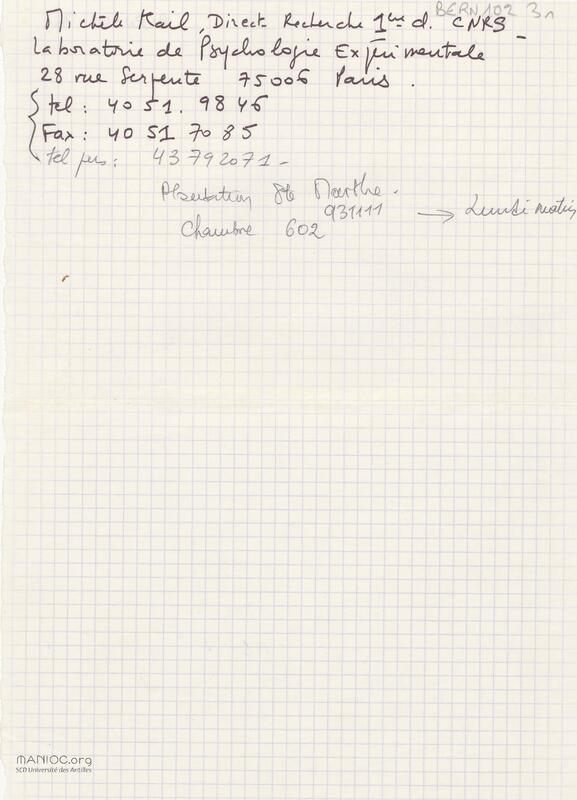 BERN102 3n
Michèle Kail, Direct Recherche 1ère d. CNRS -
Laboratoire de Psychologie Expérimentale
28 rue Serpente 75006 Paris.
tel : 40 51. 98 46
Fax : 40 51 70 85
tel pers : 43 79 20 71 -
Ste Marthe.
931111 → Lundi matin
Chambre 602
MANIOC.org
SCD Université des Antilles